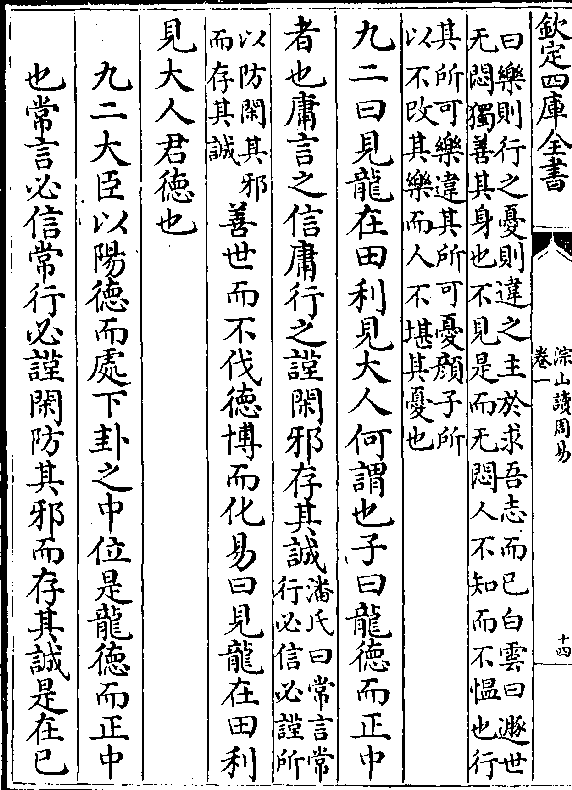 欽定四庫全書
淙山讀周易
卷一
十四
曰樂則行之憂則違之主於求吾志而已白雲曰遯世
无悶獨善其身也不見是而无悶人不知而不慍也行
其所可樂違其所可憂顔子所
以不改其樂而人不堪其憂也
九二曰見龍在田利見大人何謂也子曰龍德而正中
者也庸言之信庸行之謹閑邪存其誠
潘氏曰常言常
行必信必謹所
以防閑其邪
而存其誠
善世而不伐德博而化易曰見龍在田利
見大人君德也
九二大臣以陽德而處下卦之中位是龍德而正中
也常言必信常行必謹閑防其邪而存其誠是在已